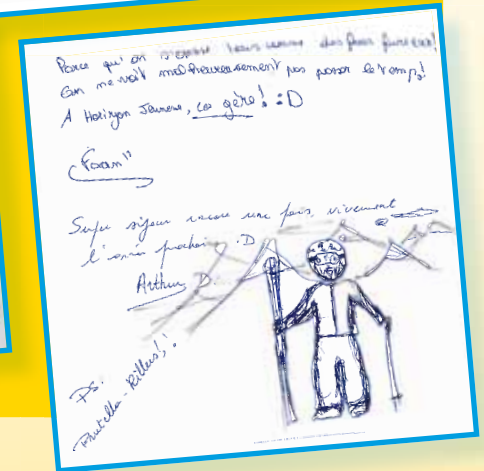 Parce qu'on s'éclate tous comme des fous furieux!
On ne voit malheureusement pas passer le temps!
A Horizon Jeunes, ça gère! :D
"Foran"
Super séjour encore une fois, vivement
l'année prochaine :D
Arthur D.
PS.